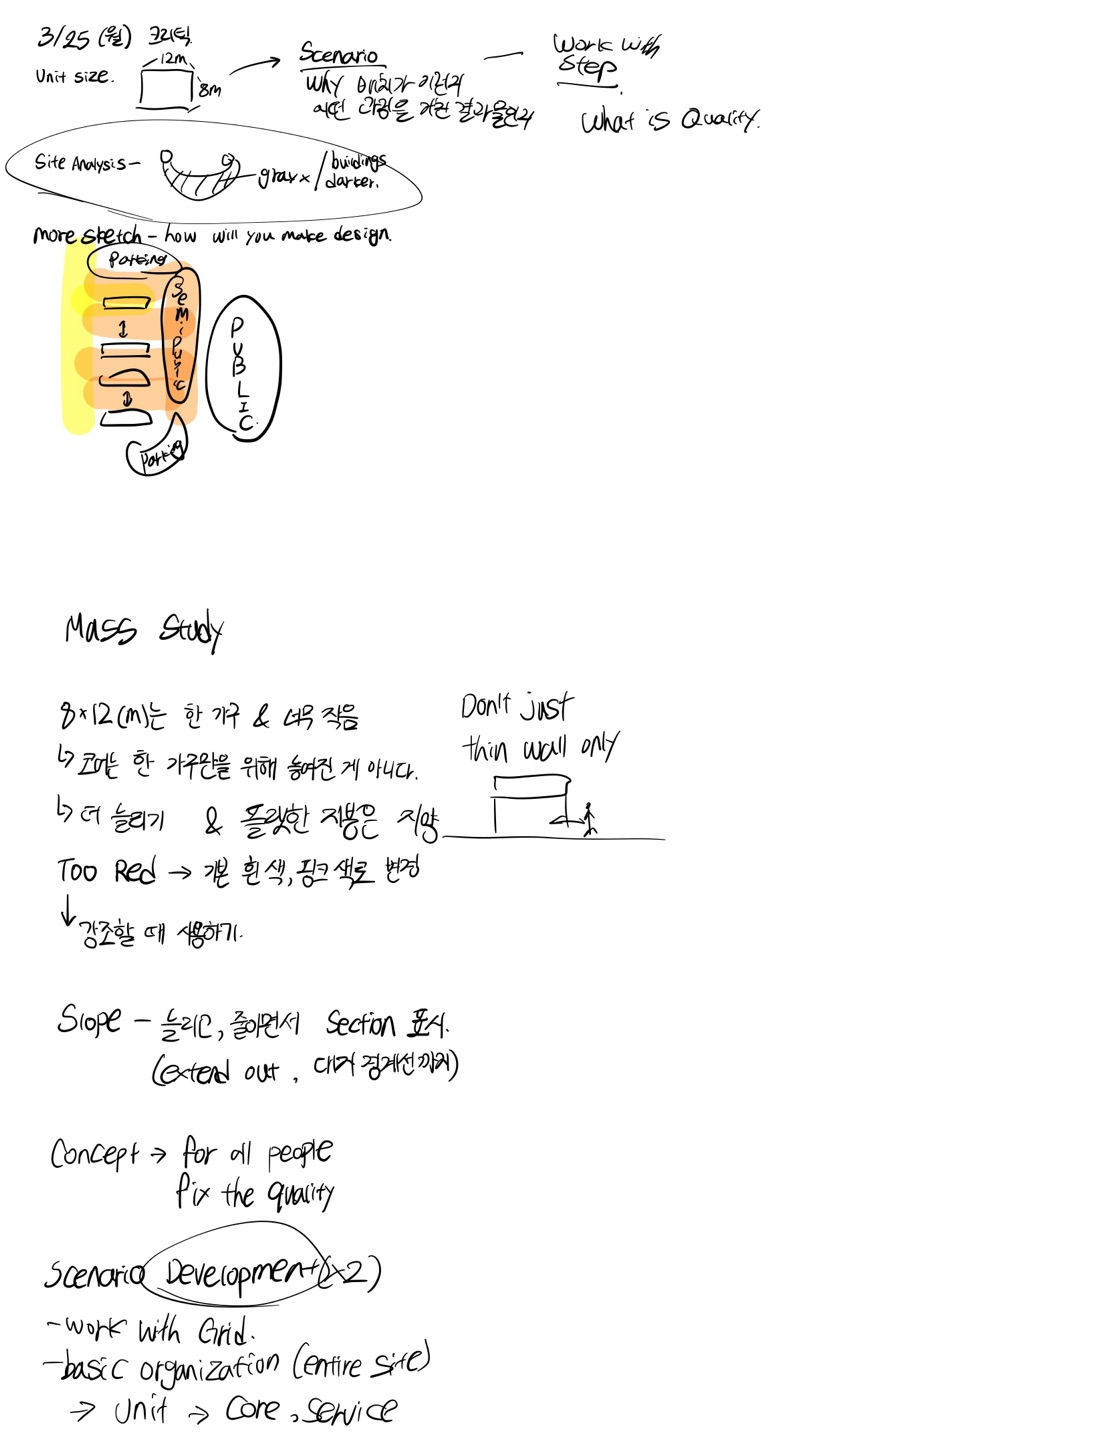 3/25 (월) 크리틱
Unit size. 12m 8m
Scenario
Why 매치가 이런지
어떤 과정을 거친 결과물인지
Work with
Step.
What is Quality.
Site Analysis - gray x / buildings
darker.
more sketch - how will you make design.
Parking
Semi Public
PUBLIC
Parking
Mass Study
8×12(m)는 한 가구 & 너무 작음
↳ 코어는 한 가구만을 위해 놓여진 게 아니다.
↳ 더 늘리기 & 플랫한 지붕은 지양
Don't just
thin wall only
Too Red → 기본 흰색,핑크색로 변경
↓ 강조할 때 사용하기.
Slope - 늘리고, 줄이면서 Section 표시.
(extend out, 대지 경계선까지)
Concept → for all people
fix the quality
Scenario Development (x2)
- work with Grid.
- basic organization (entire site)
→ unit → Core, Service